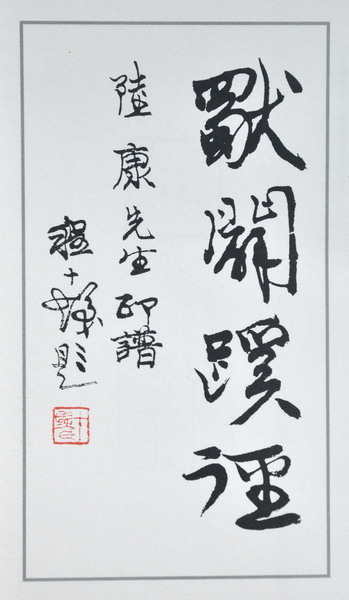 獨闢蹊徑
陸康先生印譜
程十髮題